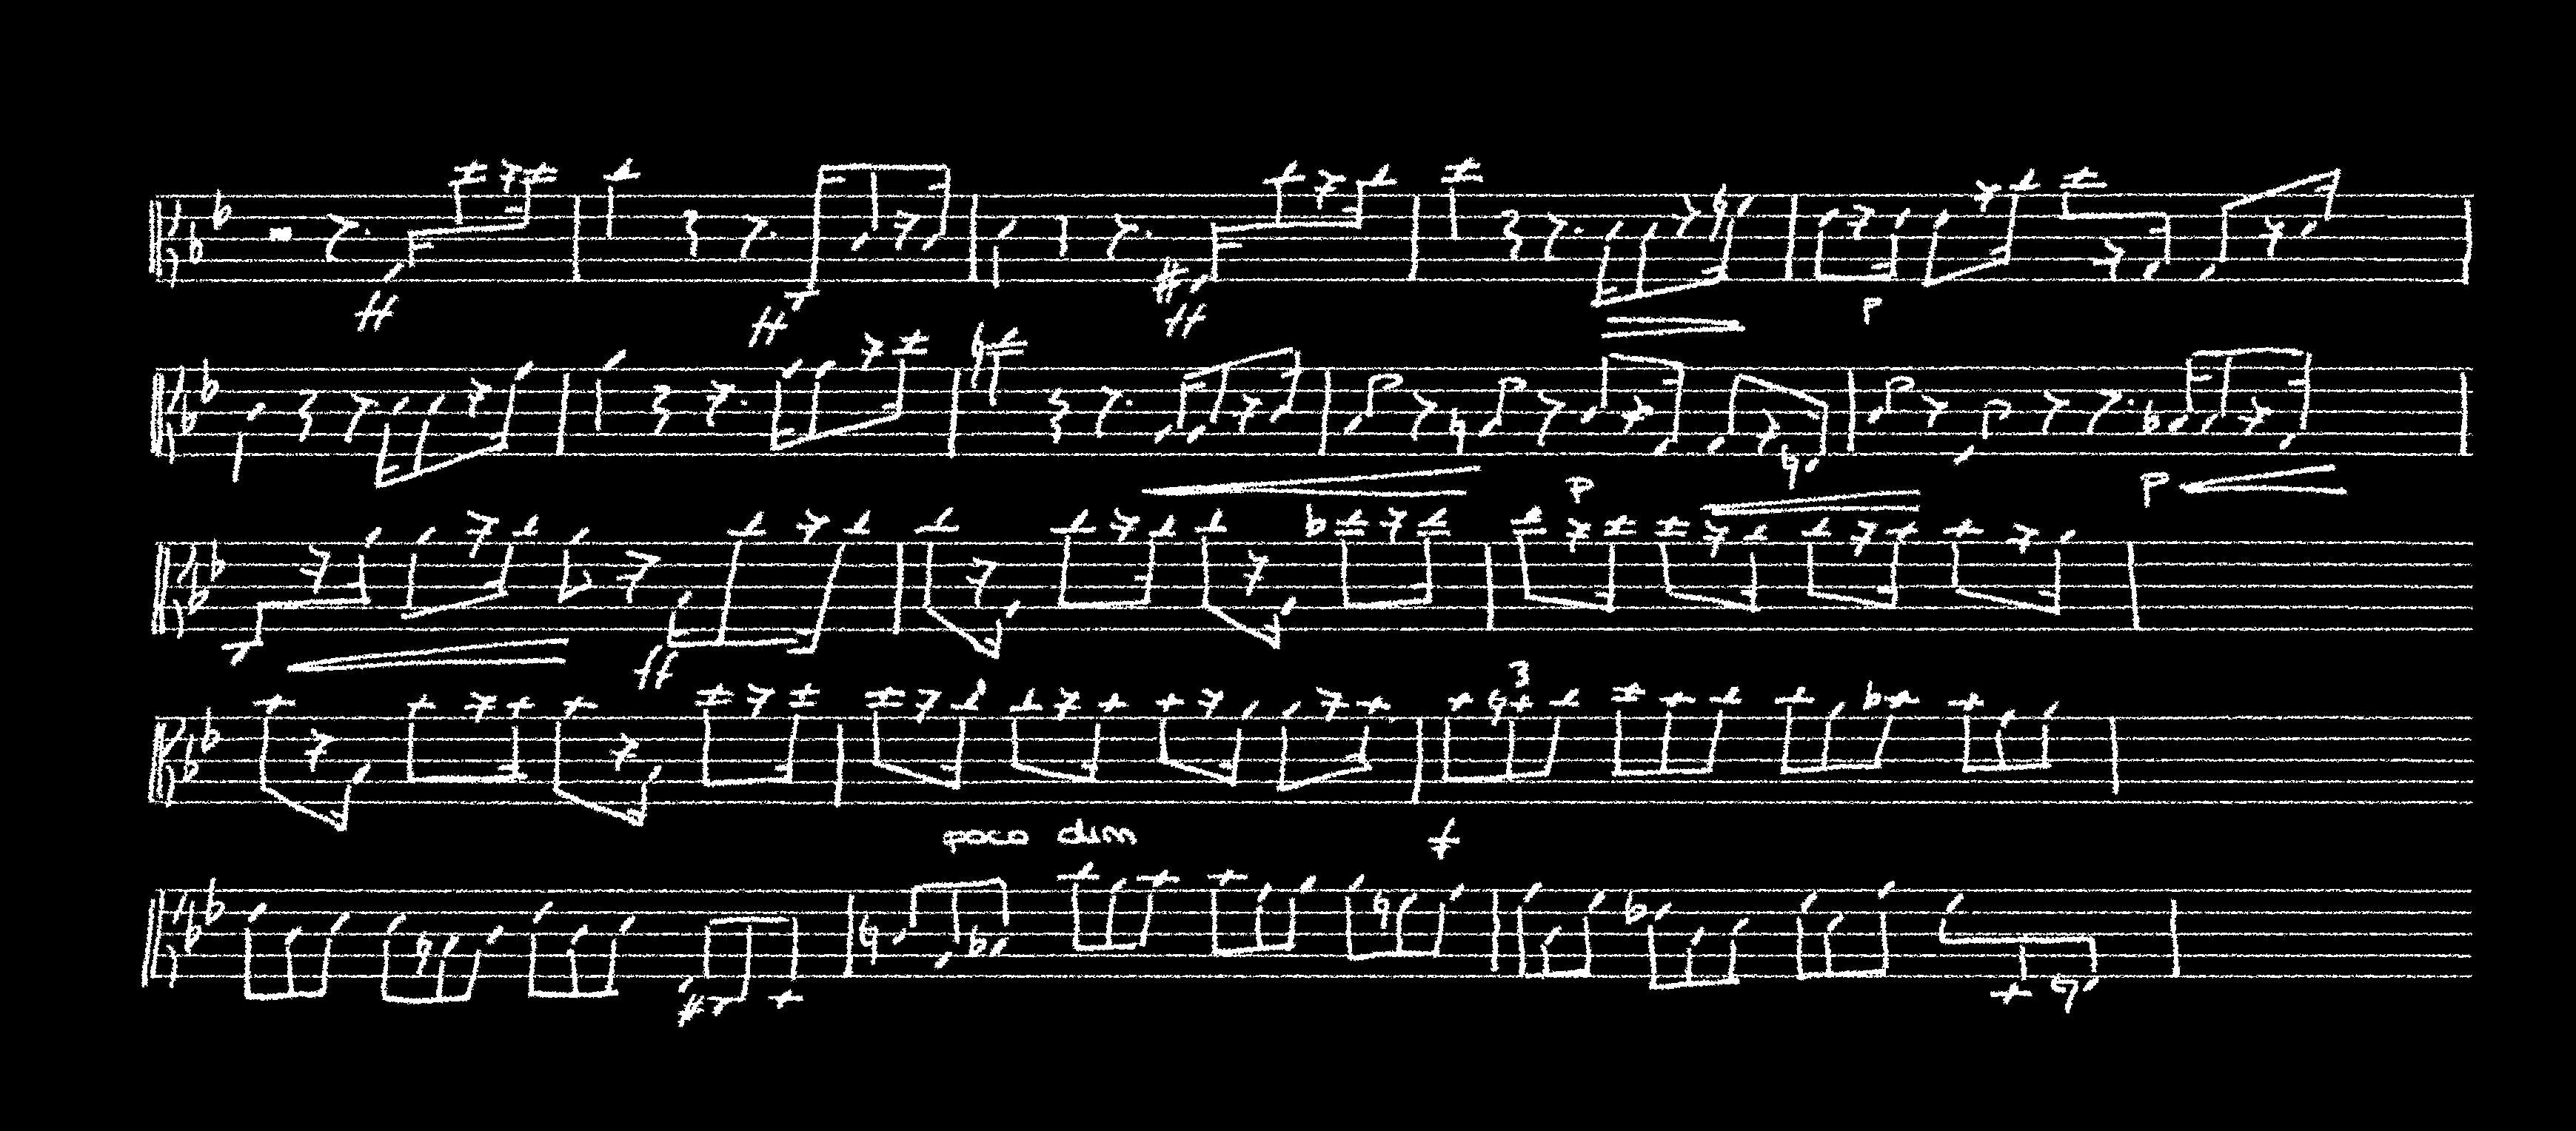 ff ff ff p
p p
ff
3
poco dim f